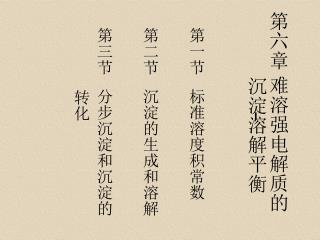 第六章 难溶强电解质的
沉淀溶解平衡
第一节 标准溶度积常数
第二节 沉淀的生成和溶解
第三节 分步沉淀和沉淀的
转化